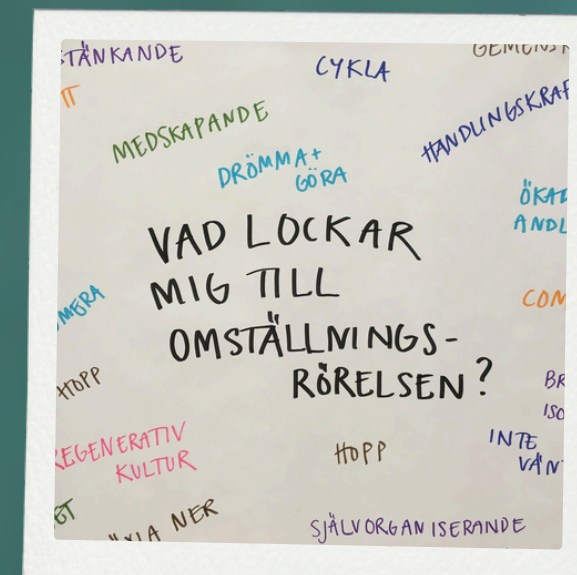 TÄNKANDE
CYKLA
MEDSKAPANDE
HANDLINGSKRAF
DRÖMMA+
GÖRA
ÖKAD
ANDL
VAD LOCKAR
MIG TILL
OMSTÄLLNINGS-
RÖRELSEN?
MERA
COM
HOPP
BR
ISO
REGENERATIV
KULTUR
HOPP
INTE
VÄN
ET
NER
SJÄLVORGANISERANDE